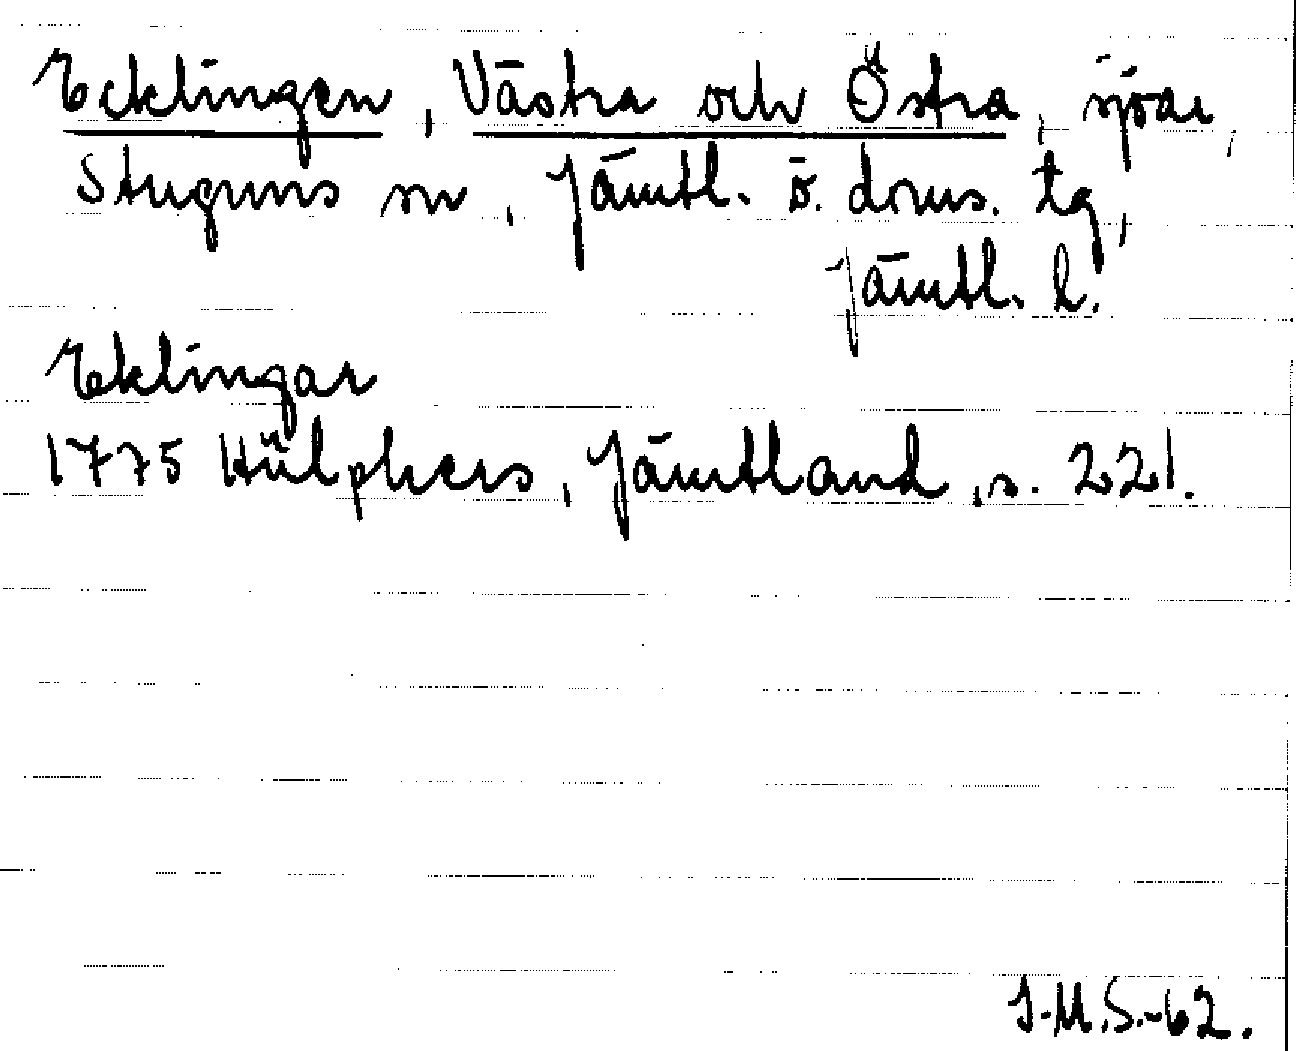 Ecklingen, Västra och Östra, sjöar,
Stuguns sn, Jämtl. ö. doms. tg,
Jämtl. l.
Eklingar
1775 Hülphers, Jämtland, s. 221.
I-M.S.-62.